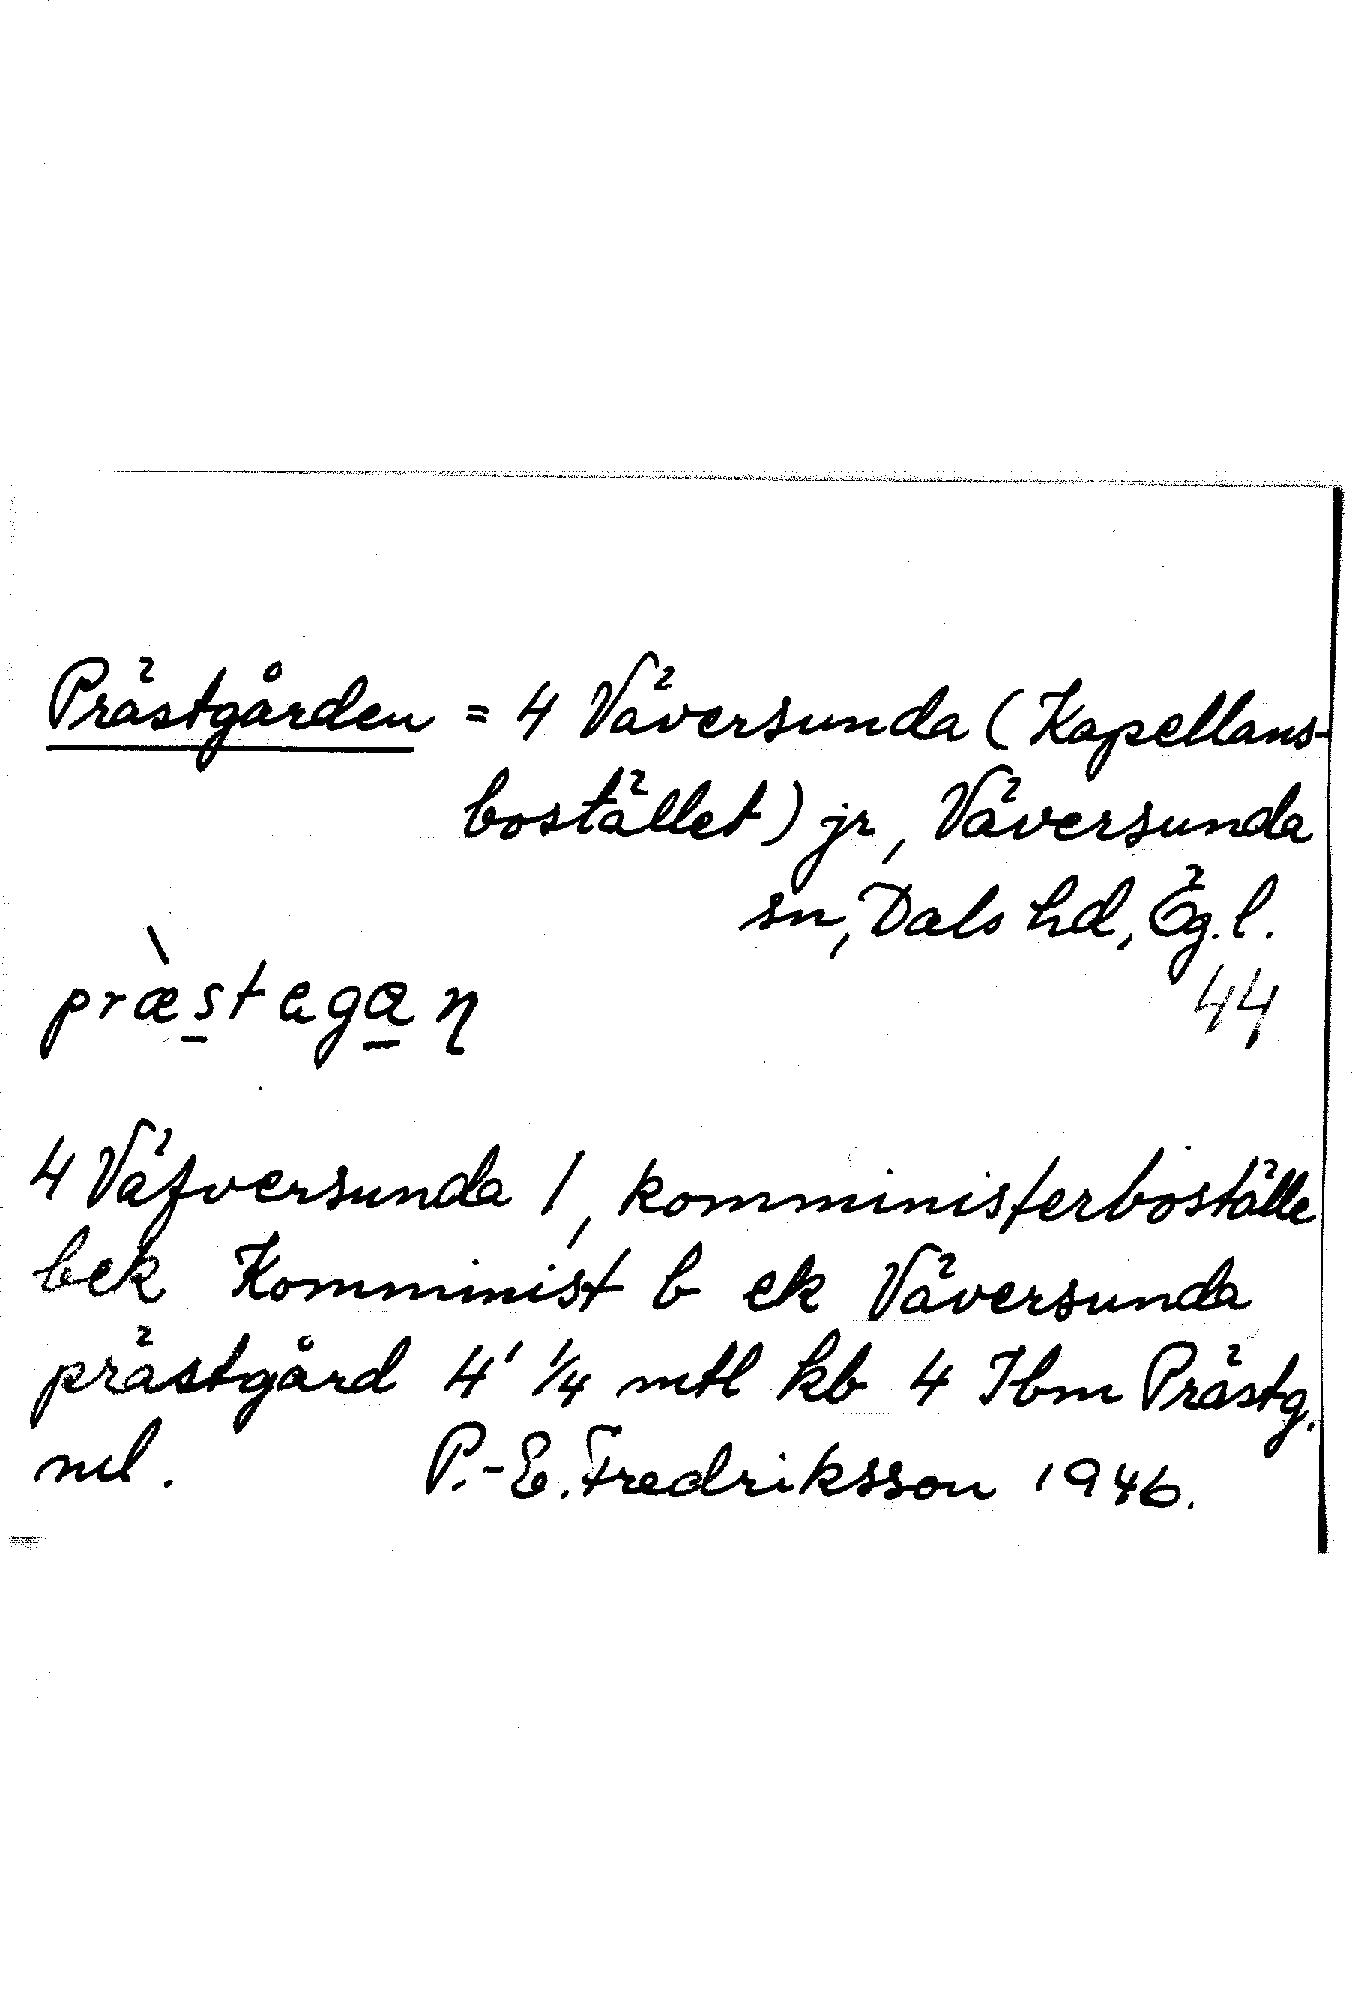 Prästgården = 4 Väversunda (Kapellans-
bostället) jr, Väversunda
sn, Dals hd, Ög. l.
44
præ̀stagan
4 Väfversunda 1, komministerboställe
bek Komminist b ek Väversunda
prästgård 4' 1/4 mtl kb 4 Ibm Prästg.
ml. P.-E. Fredriksson 1946.